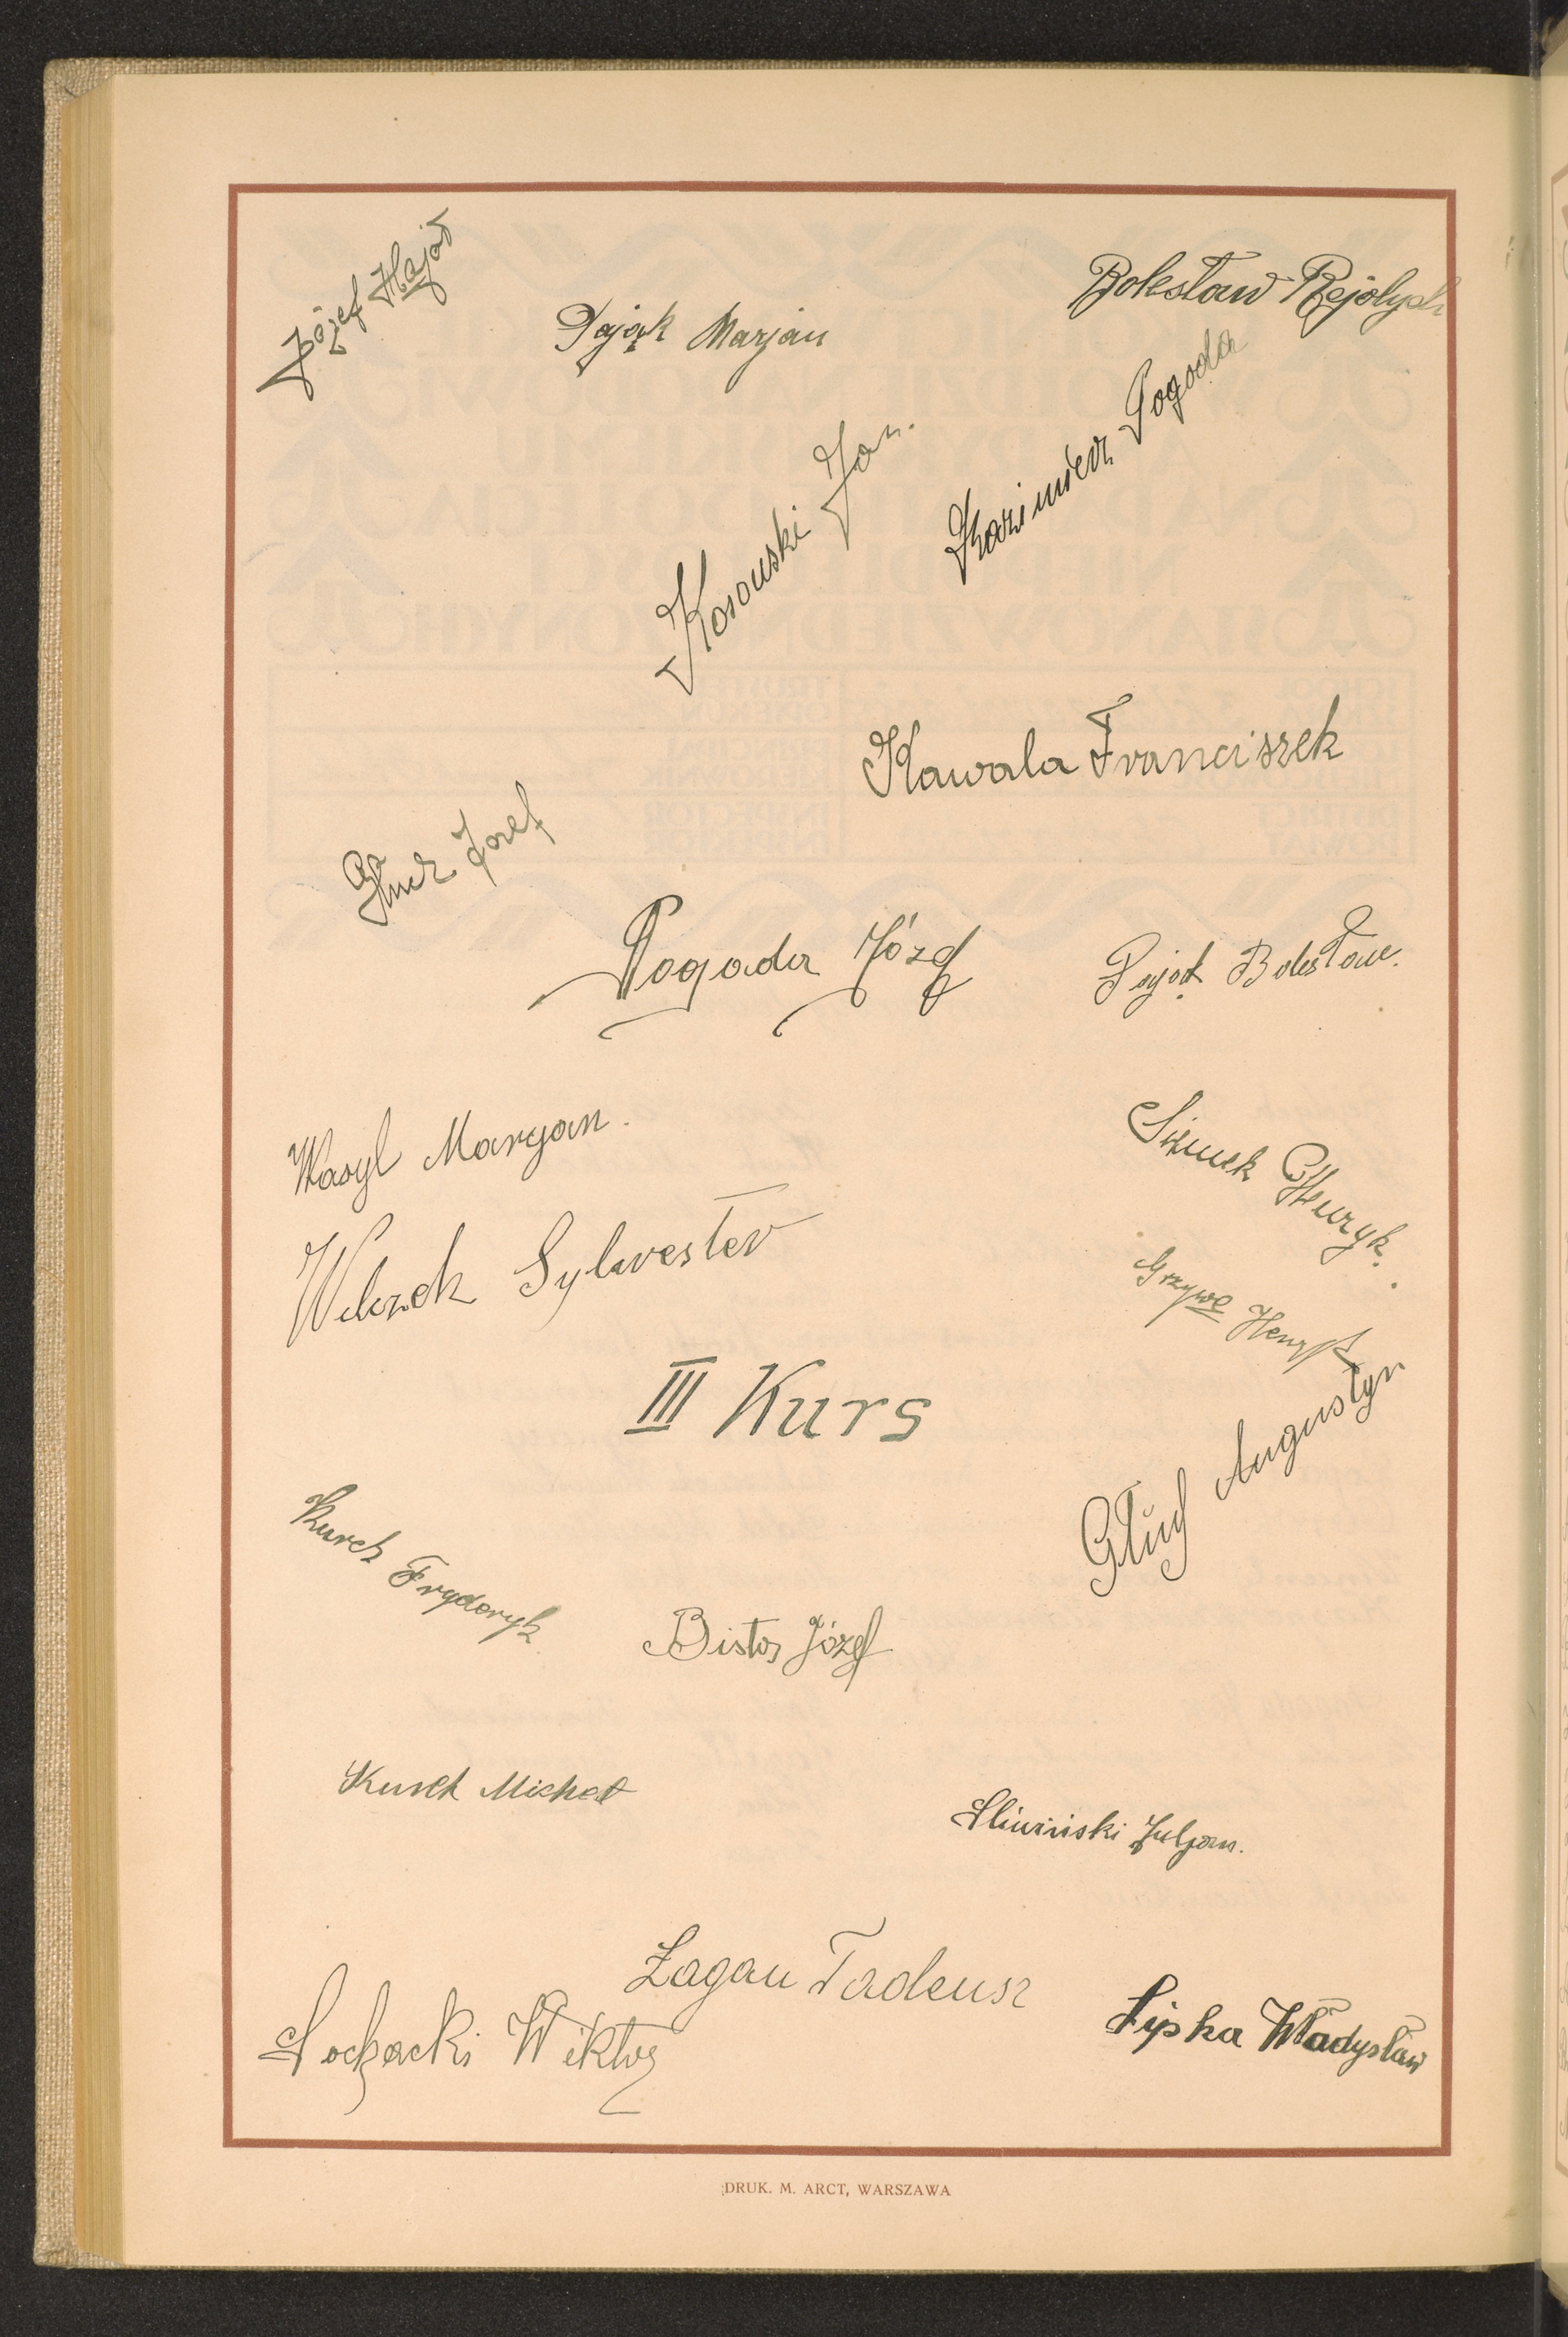 Józef Hajór
Pająk Marjan
Bolesław
Kosowski Jan.
Kazimierz Pogoda
Kawala Franciszek
Józef
Pogoda Józef
Bolesław.
Wasyl Maryan.
Simek Henryk.
Wilczek Sylwester
Grzywa Henryk
III Kurs
Głuch Augustyn
Kurek Fryderyk
Bistor Józef
Kurek Michał
Śliwiński Juljan.
Żagan Tadeusz
Sochacki Wiktor
Lipka Władysław
DRUK. M. ARCT, WARSZAWA